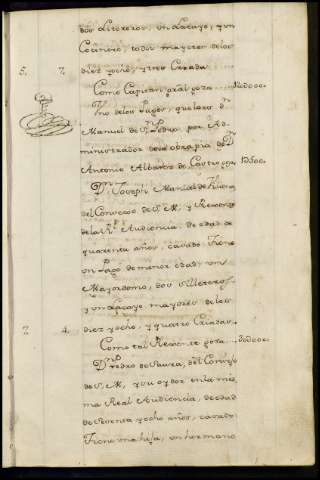 dos Litereros, un Lacayo, y un
Cocinero, todos mayores de los
diez y ocho, y tres Criadas
5. 7.
Como Capitan gral goza
Uno de los Lugos, que lo es Dn
Manuel de Sn Pedro, por Ad-
ministrador de la obra pia de Dn
Antonio Albarez de Castro, goza 1050 0.
Dn Joseph Manuel de
del Consejo de S. M. y Regente
de la Rl Audiencia, de edad de
quarenta años, casado. Tiene
un Page de menor edad, un
Mayordomo, dos Litereros,
y un Lacayo mayores de los
diez y ocho, y quatro Criadas.
7. 4.
Como tal Regente goza
Dn Pedro de el Consejo
de S. M. y su oydor en la mis-
ma Real Audiencia, de edad
de sesenta y ocho años, casado.
Tiene una hija, un hermano